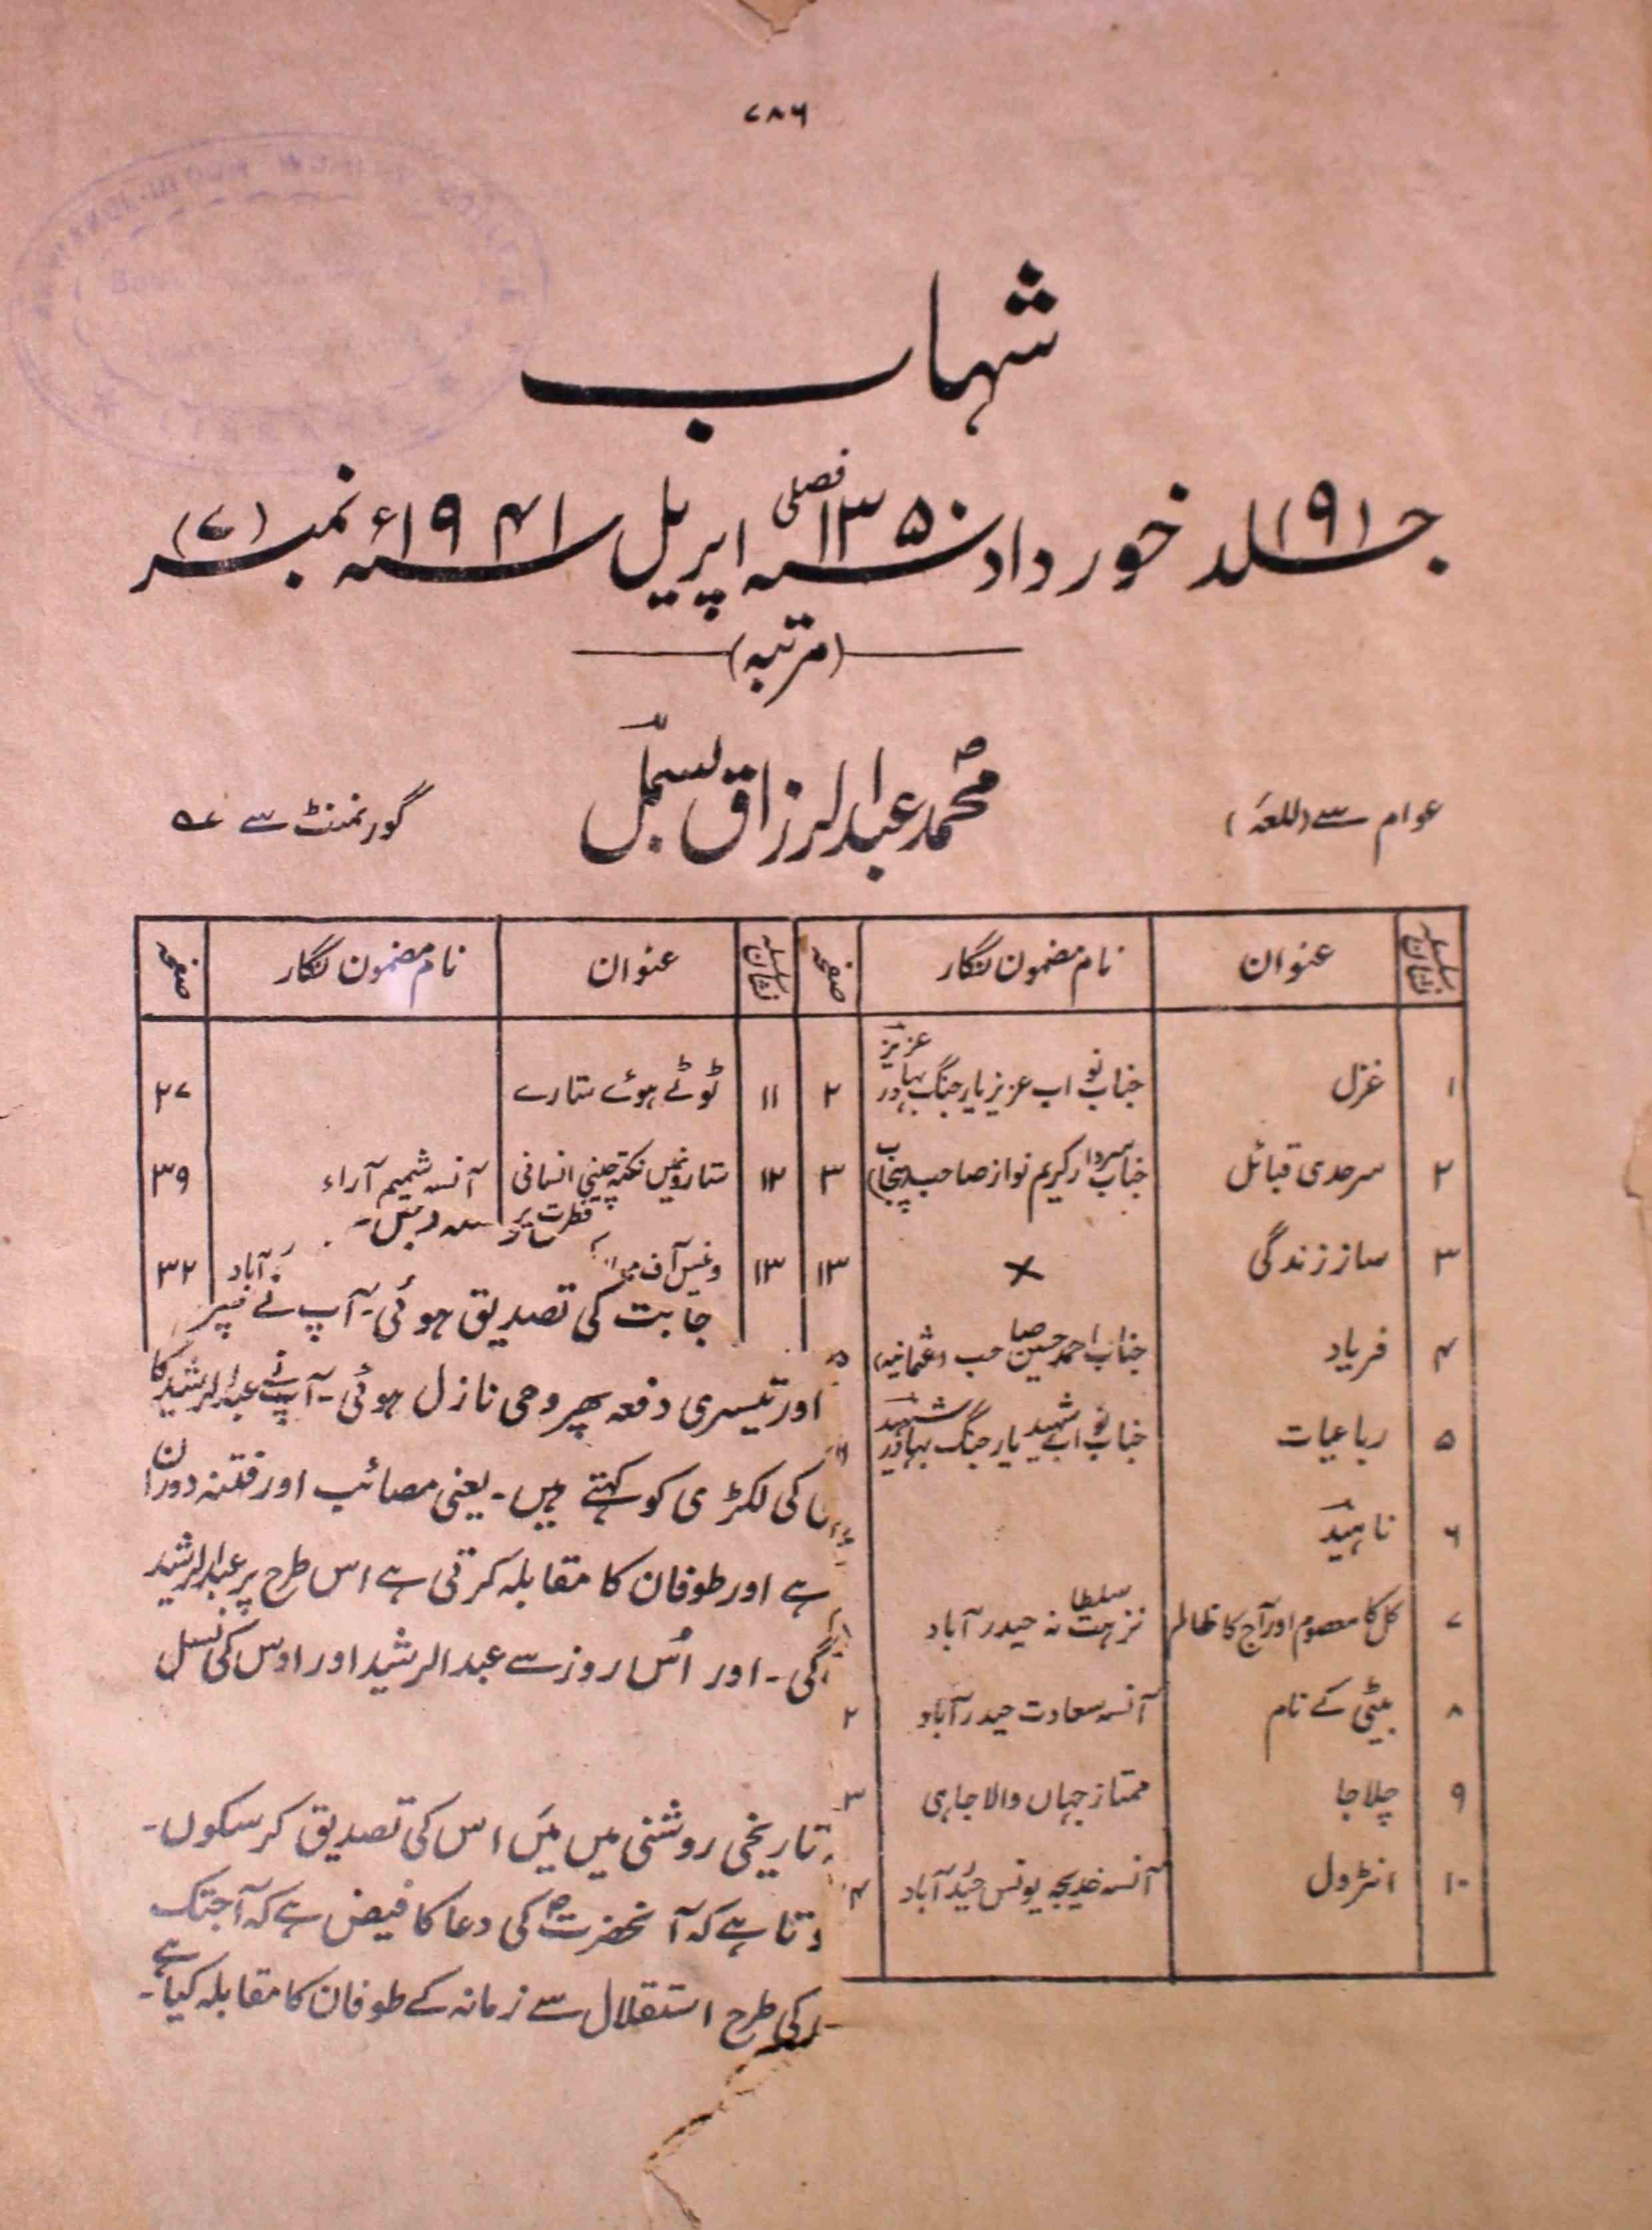 ۷۸۶
شہاب
جلد (۱۹) خورداد سنہ ۱۳۵۰ فصلی اپریل سنہ ۱۹۴۱ء نمبر (۷)
(مرتبہ)
محمد عبدالرزاق بسمل
عوام سے (للعہ)
گورنمنٹ سے
سلسلہ نشان عنوان نام مضمون نگار صفحہ
۱ غزل جناب نواب عزیز یار جنگ بہادر عزیز ۲
۲ سرحدی قبائل جناب سردار کریم نواز صاحب (پنجاب) ۳
۳ ساز زندگی × ۱۳
۴ فریاد جناب احمد حسین صاحب (عثمانیہ)
۵ رباعیات جناب نواب شہید یار جنگ بہادر شہید
۶ ناہید
۷ کل کا معصوم اور آج کا ظالم نزہت سلطانہ حیدرآباد
۸ بیٹی کے نام آنسہ سعادت حیدرآباد ۲
۹ چلا جا ممتاز جہاں والا جاہی ۳
۱۰ انٹرول آنسہ خدیجہ یونس حیدرآباد ۴
سلسلہ نشان عنوان نام مضمون نگار صفحہ
۱۱ ٹوٹے ہوئے ستارے ۲۷
۱۲ ستاروں میں نکتہ چینی انسانی فطرت پر آنسہ شمیم آراء ۳۹
۱۳ وغیس آف آباد ۳۲
جابت کی تصدیق ہوئی۔ آپ نے پھر
اور تیسری دفعہ پھر وحی نازل ہوئی۔ آپ نے عبدالرشید کا
کی لکڑی کو کہتے ہیں۔ یعنی مصائب اور فتنہ دوراں
ہے اور طوفان کا مقابلہ کرتی ہے اس طرح پر عبدالرشید
گی۔ اور اُس روز سے عبدالرشید اور اوس کی نسل
تاریخی روشنی میں میَں اس کی تصدیق کر سکوں۔
وتا ہے کہ آنحضرتؐ کی دعا کا فیض ہے کہ آجتک
کی طرح استقلال سے زمانہ کے طوفان کا مقابلہ کیا ہے۔